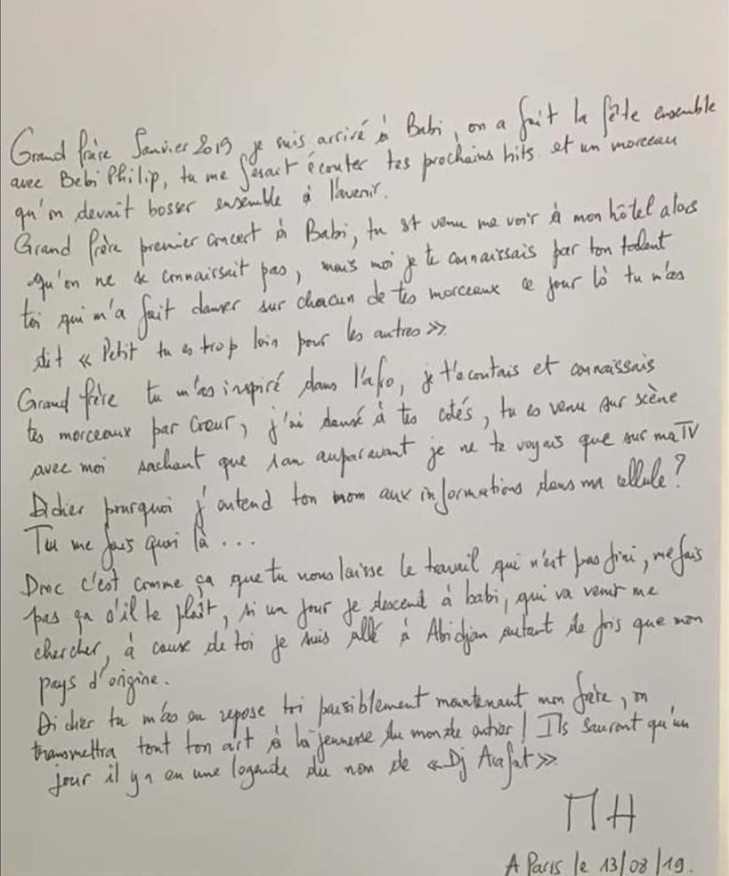 Grand frère Janvier 2019 je suis arrivé à Babi, on a fait la fête ensemble
avec Bebi Philip, tu me fesait écouter tes prochains hits et un morceau
qu'on devait bosser ensemble à l'avenir.
Grand frère premier concert à Babi, tu est venu me voir à mon hôtel alors
qu'on ne se connaissait pas, mais moi je te connaissais par ton talent
toi qui m'a fait danser sur chacun de tes morceaux ce jour là tu m'as
dit « Petit tu es trop loin pour les autres »
Grand frère tu m'as inspiré dans l'afro, je t'ecoutais et connaissais
tes morceaux par cœur, j'ai dansé à tes cotés, tu es venu sur scène
avec moi sachant que 1 an auparavant je ne te voyais que sur ma TV
Didier pourquoi j'entend ton nom aux informations dans ma cellule ?
Tu me fais quoi là ...
Donc c'est comme ça que tu nous laisse le travail qui n'est pas fini, me fais
pas ça s'il te plaît, si un jour je descend à babi, qui va venir me
chercher, à cause de toi je suis allé à Abidjan autant de fois que mon
pays d'origine.
Didier tu m'as eu repose toi paisiblement maintenant mon frère, on
transmettra tout ton art à la jeunesse du monde entier ! Ils sauront qu'un
jour il y a eu une legende du nom de « Dj Arafat »
MH
A Paris le 13/08/19.